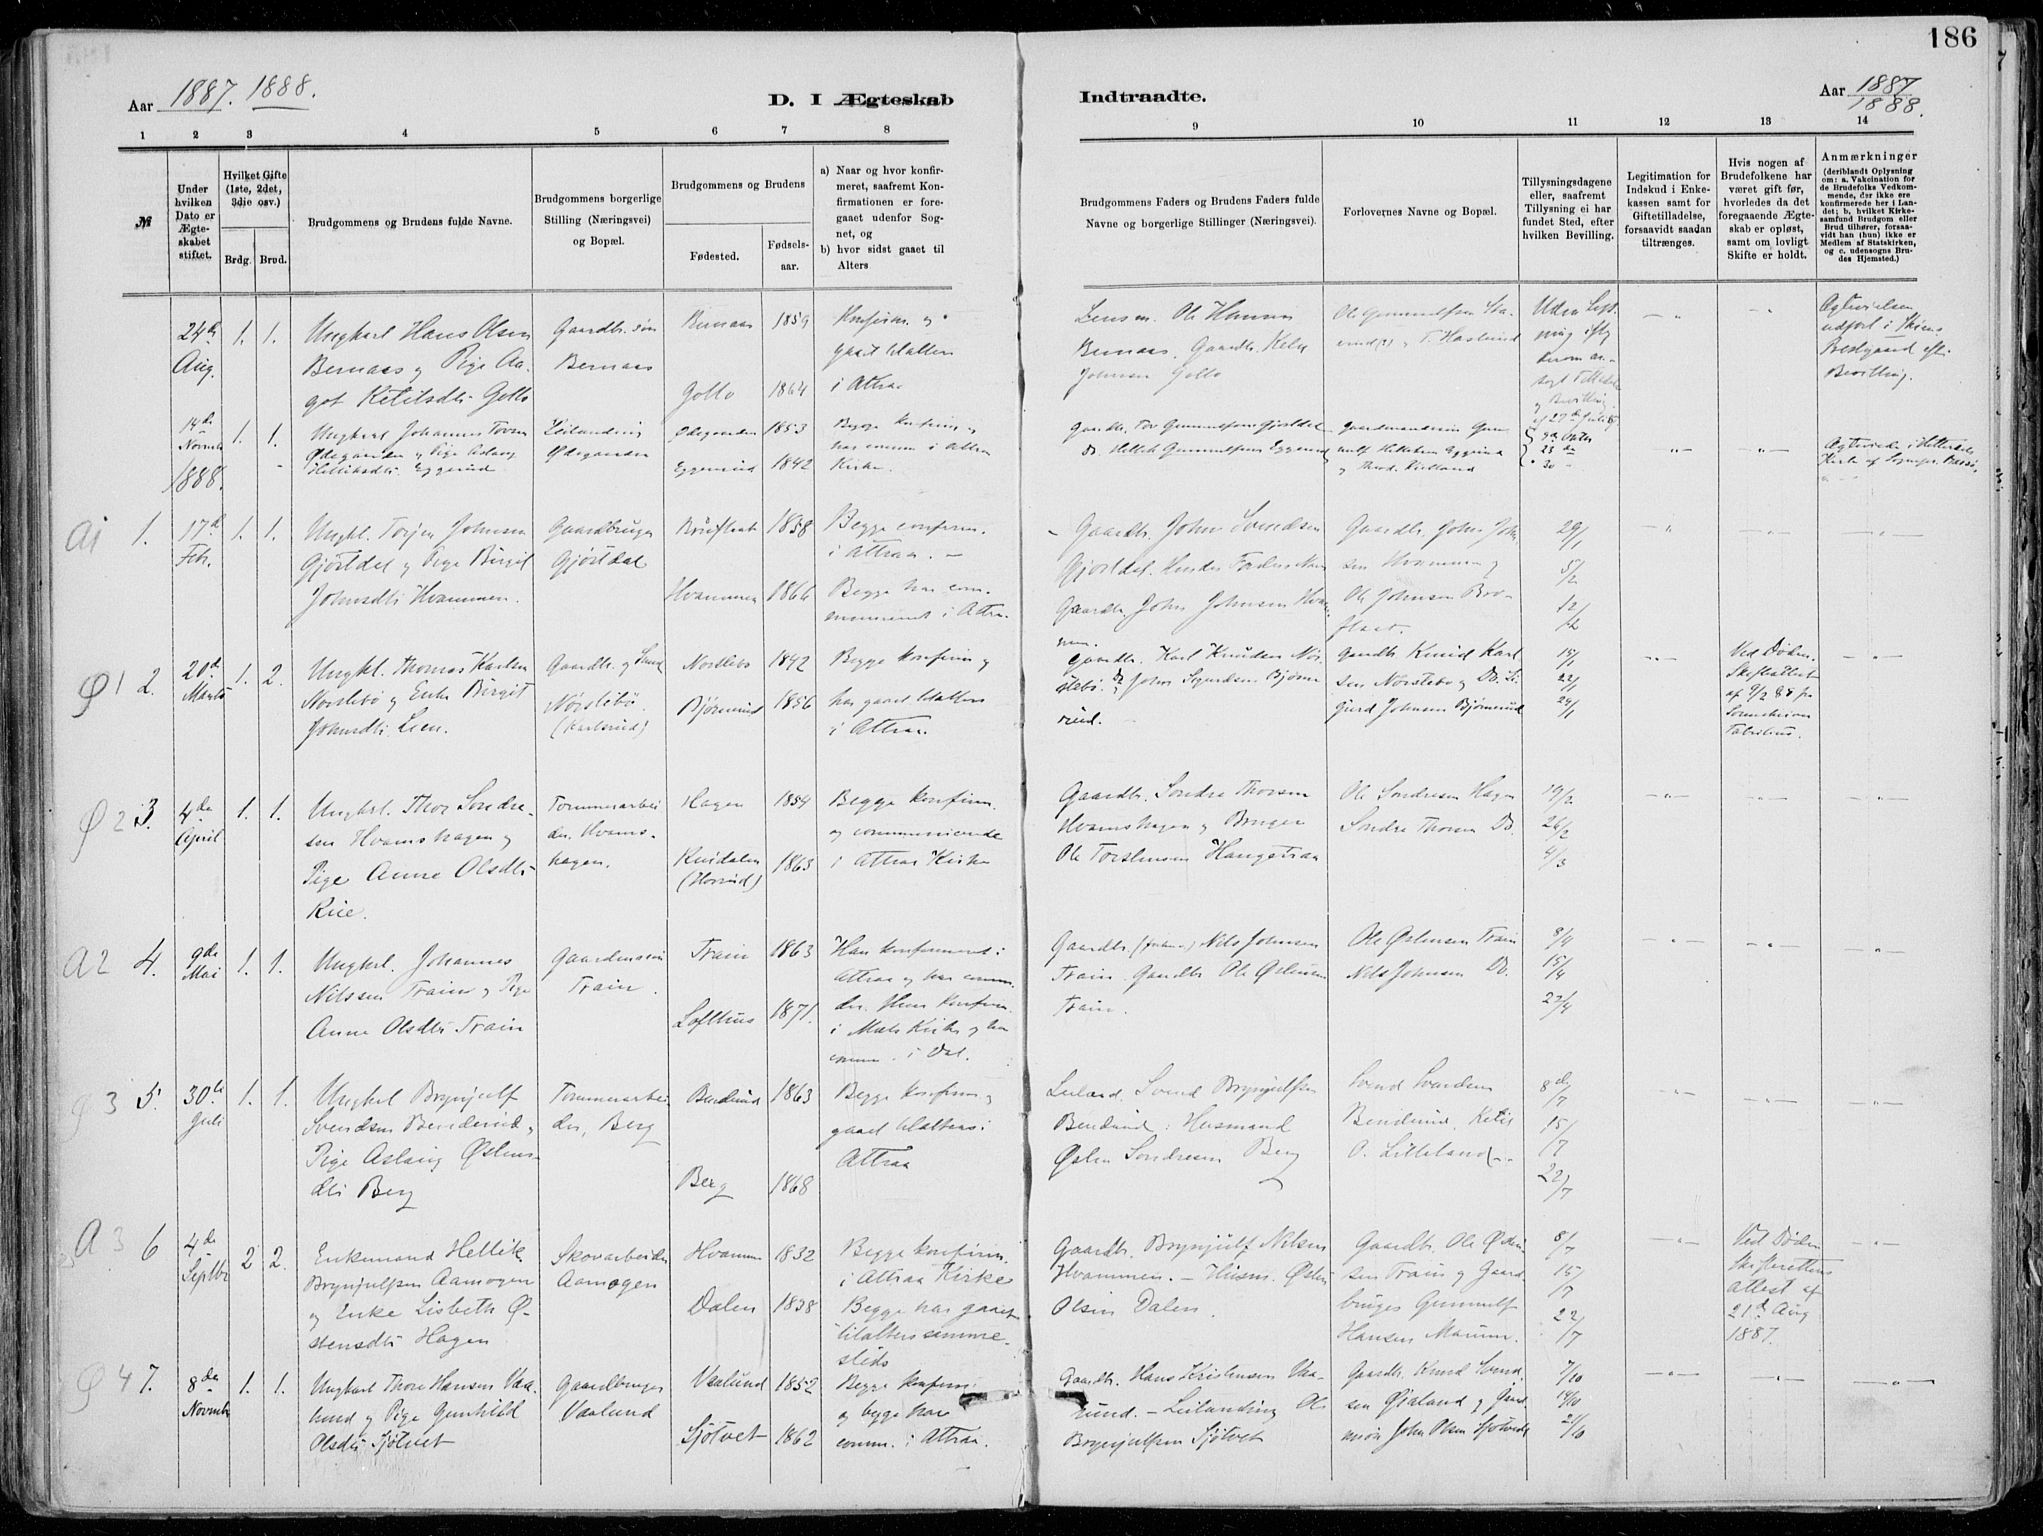 186
Aar 1887. 1888.
D. I Ægteskab
Indtraadte.
Aar 1887
1888.
1 2 3 4 5 6 7 8
9 10 11 12 13 14
№
Under
hvilken
Dato er
Ægte-
skabet
stiftet.
Hvilket Gifte
(1ste, 2det,
3die osv.)
Brdg. Brud.
Brudgommens og Brudens fulde Navne.
Brudgommens borgerlige
Stilling (Næringsvei)
og Bopæl.
Brudgommens og Brudens
Fødested.
Fødsels-
aar.
a) Naar og hvor konfir-
meret, saafremt Kon-
firmationen er fore-
gaaet udenfor Sog-
net, og
b) hvor sidst gaaet til
Alters
Brudgommens Faders og Brudens Faders fulde
Navne og borgerlige Stillinger (Næringsvei).
Forlovernes Navne og Bopæl.
Tillysningsdagene
eller, saafremt
Tillysning ei har
fundet Sted, efter
hvilken Bevilling.
Legitimation for
Indskud i Enke-
kassen samt for
Giftetilladelse,
forsaavidt saadan
tiltrænges.
Hvis nogen af
Brudefolkene har
været gift før,
hvorledes da det
foregaaende Ægte-
skab er opløst,
samt om lovligt
Skifte er holdt.
Anmærkninger
(deriblandt Oplysning
om: a. Vakcination for
de Brudefolks Vedkom-
mende, der ikke ere
konfirmerede her i Lan-
det; b, hvilket Kirke-
samfund Brudgom eller
Brud tilhører, forsaa-
vidt han (hun) ikke er
Medlem af Statskirken,
og c. udensogns Bru-
des Hjemsted.)
24de
Aug.
1. 1.
Ungkarl Hans Olsen
Bernaas og Pige Aa-
got Ketilsdtr. Gollo
Gaardbr. søn
Bernaas
Bernaas 1859
Gollo 1864
Konfirm. og
gaaet til alters
i Attraa
Lensm. Ole Hansen
Bernaas. Gaardbr. Ketil
Johnsen Gollo
T. Haslund
Uden Lyst-
ning efter
Ægtevielsen
udført i Skiens
Prestgaard efter
Bevilling.
14de
Novmb
1. 1.
Ungkarl Johannes Toven
Ødegaarden og Pige Aslaug
Helliksdtr. Eggerud
Leilænding
Ødegaarden
Ødegaarden 1853
Eggerud 1842
Begge konf. og
har comm. i Attraa
Kirke.
Gaardbr. Tov Gunnulfsen Gjøstdal
Do Hellik Gunnulfsen Eggerud
23 de
30 -
1888.
A1 1. 17de
Febr.
1. 1.
Ungkl. Torjen Johnsen
Gjøstdal og Pige Birgit
Johnsdtr. Hvammen.
Gaardbruger
Gjøstdal
Broflaat 1858
Hvammen 1866
Begge confirm.
i Attraa. -
Begge har com-
municeret i Attraa.
- Gaardbr. John Svendsen
Gjøstdal. Hendes Faders Navn
Gaardbr. John Johnsen Hvam-
men.
Gaardbr. John John-
sen Hvammen og
Ole Johnsen Bro-
flaat.
29/1
5/2
12/2
Ø1 2. 20de
Marts
1. 2.
Ungkl. Thomas Karlsen
Norslebø og Enke Birgit
Johnsdtr. Lien.
Gaardbr. og Smed
Nørslebø.
(Karlsrud)
Norslebø 1842
Bjørnerud 1856
Begge konfirm. og
har gaaet til alters
i Attraa.
Gaardbr. Karl Knudsen Nor-
slebø. Do John Sigurdsen Bjørne-
rud.
Gaardbr. Knud Karl-
sen Norslebø og Do. Si-
gurd Johnsen Bjørnerud
15/1
22/1
29/1
Ved Døden.
Skifteattest
af 9/2 88 fra
Sorenskriver
Fabritius.
Ø 2 3. 4de
April
1. 1.
Ungkrl. Thor Sondre-
sen Hvamshagen og
Pige Anne Olsdtr.
Rue.
Tømmerarbei-
der, Hvams-
hagen.
Hagen 1854
Rusdalen 1863
Begge konfirm.
og communicerede
i Attraa Kirke
Gaardbr. Sondre Thorsen
Hvamshagen og Bruger
Ole Torstensen Haugstraa
Ole Sondresen Hagen
Sondre Thorsen Do.
19/2
26/2
4/3
A 2 4. 9de
Mai
1. 1.
Ungkrl. Johannes
Nilssen Train og Pige
Anne Olsdtr Train
Gaardmanssøn
Train.
Train 1863
Lofthus 1871.
Han konfirmeret i
Attraa og har comm.
der. Hun konfirm.
i Mæls Kirke og har
comm. i Dal.
Gaardbr. Nils Johnsen
Train. Gaardbr. Ole Østensen
Train.
Ole Østensen Train
Nils Johnsen Do.
8/4
15/4
22/4
Ø 3 5. 30te
Juli
1. 1.
Ungkrl Brynjulf
Svendsen Benderud og
Pige Aslaug Østens-
dtr Berg
Tømmerarbei-
der, Berg
Benderud 1863
Berg 1868
Begge konfirm. og
gaaet til alters i
Attraa
Leiland. Svend Brynjulfsen
Benderud: Husmand
Østen Sondresen Berg
Svend Svendsen
Benderud, Ketil
O. Lilleland.
8de/7
15/7
22/7
A 3 6 4de
Septbr
2 2.
Enkemand Hellik
Brynjulfsen Aamogen
og Enke Lisbeth Ø-
stensdtr Hagen
Skovarbeider
Aamogen
Hvammen 1832
Dalen 1838
Begge konfirm.
i Attraa Kirke
Begge har gaaet
til alters samme-
steds
Gaardbr. Brynjulf Nilsen
Hvammen. - Husm. Østen
Olsen Dalen
Gaardbr. Ole Østen-
sen Train og Gaard-
bruger Gunnulf
Hansen Marum.
8/7
15/7
22/7
Ved Døden
Skifterettens
attest af
21de Aug
1887.
Ø 4 7. 8de
Novmbr
1. 1.
Ungkarl Thore Hansen Vaa-
lund og Pige Gunhild
Olsdtr Sjøtvet
Gaardbruger
Vaalund
Vaalund 1852
Sjøtvet 1862
Begge konfirm.
og begge har
comm. i Attraa.
Gaardbr. Hans Kristensen Vaa-
lund. - Leilænding Ole
Brynjulfsen Sjøtvet
Gaardbr. Knud Svend-
sen Øialand og Gaard-
mssøn John Olsen Sjøtvedt
7/10
14/10
21/10